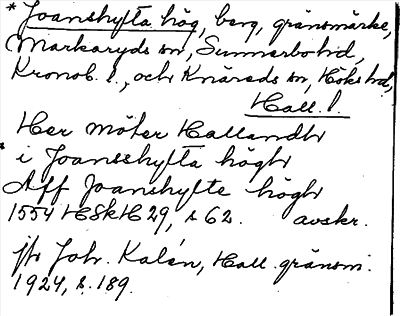 * Joanshyfta hög, berg, gränsmärke,
Markaryds sn, Sunnerbo hd,
Kronob. l., och Knäreds sn, Höks hd,
Hall. l.
Her möter Hallandh
i Joansshyfta högh
Aff Joanshyfte högh
1554 HSkH 29, s 62. avskr.
jfr Joh. Kalén, Hall. gränsm.
1924, s. 189.